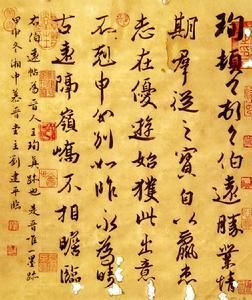 珣頓々首々伯遠勝業情
期羣從之寶自以羸患
志在優遊始獲此出意
不剋申分別如昨永為疇
古遠隔嶺嶠不相瞻臨
右伯遠帖為晉人王珣真跡也是晉唯一墨跡
甲申冬湘中慕晉堂主劉建平臨